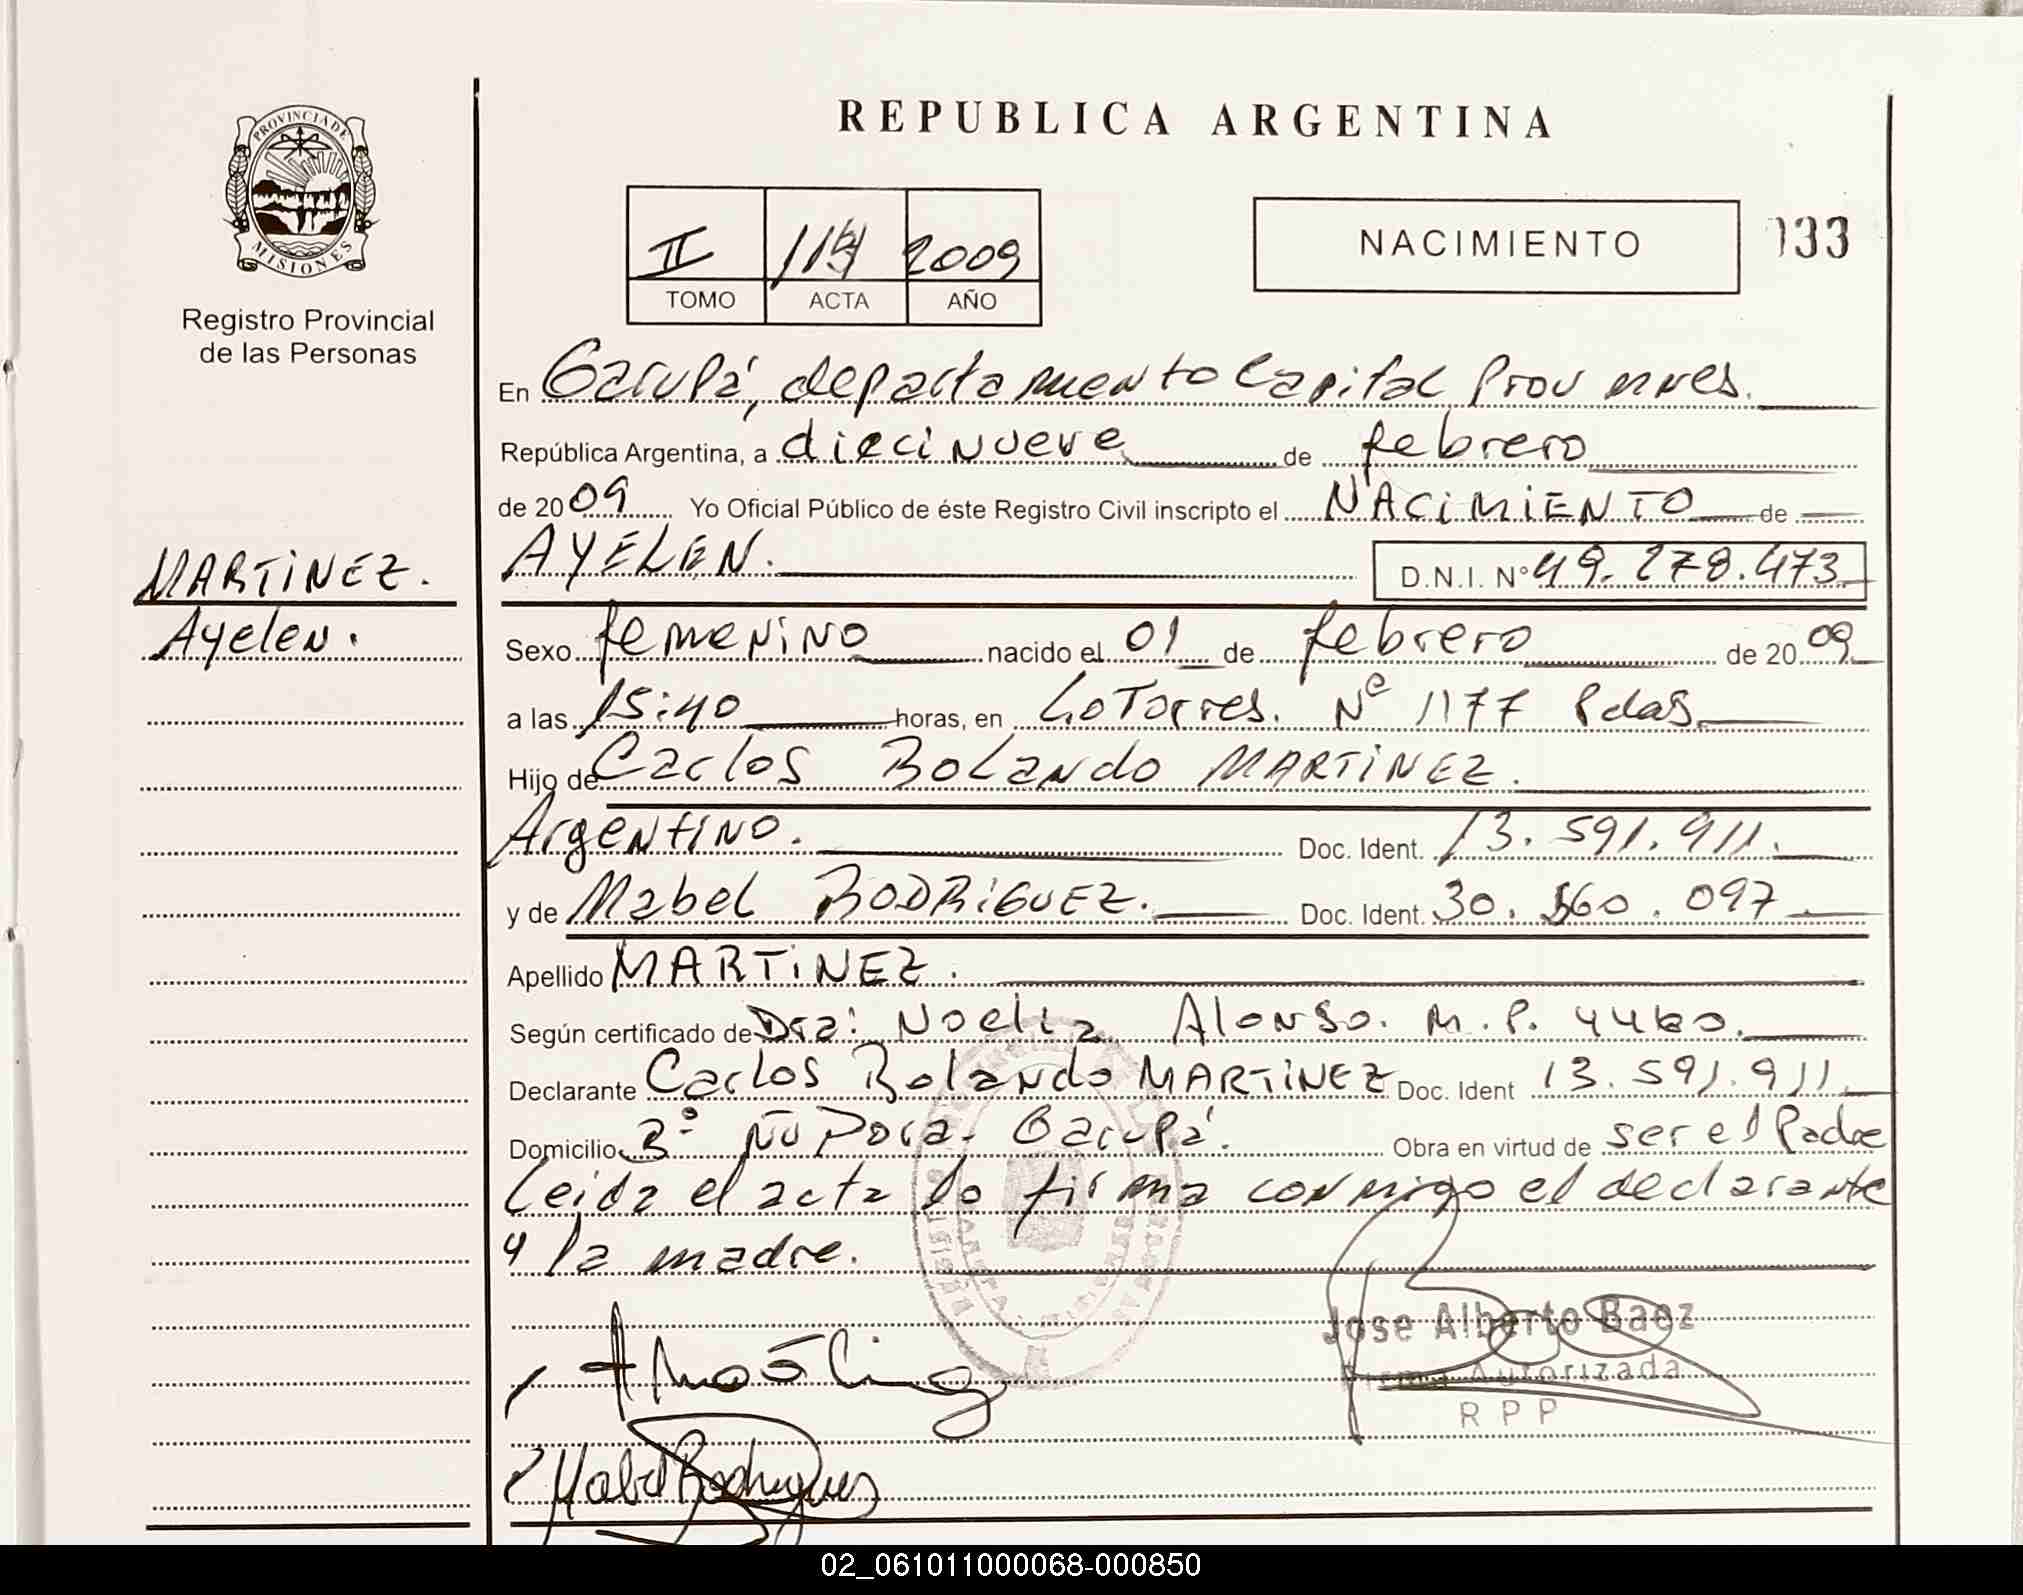 PROVINCIA DE
MISIONES
Registro Provincial
de las Personas
MARTINEZ.
Ayelen.
REPUBLICA ARGENTINA
II 2009
TOMO ACTA AÑO
NACIMIENTO 133
En Garupá, departamento Capital Prov
República Argentina, a diecinueve de febrero
de 2009 Yo Oficial Público de éste Registro Civil inscripto el NACIMIENTO de
AYELEN. D.N.I. N° 49.278.473
Sexo femenino nacido el 01 de febrero de 2009
a las 15:40 horas, en LoTorres. Nº 1177 Pdas
Hijo de Carlos Rolando MARTINEZ.
Argentino. Doc. Ident. 13.591.911.
y de Mabel RODRIGUEZ. Doc. Ident. 30. 097
Apellido MARTINEZ.
Según certificado de Dra: Noelia Alonso. M.P.
Declarante Carlos Rolando MARTINEZ Doc. Ident 13.591.911
Domicilio Bº Ñu Pora. Garupá. Obra en virtud de ser el Padre
Leida el acta lo firma conmigo el declarante
y la madre.
Jose Alberto Baez
Firma Autorizada
RPP
Mabel Rodriguez
02_061011000068-000850